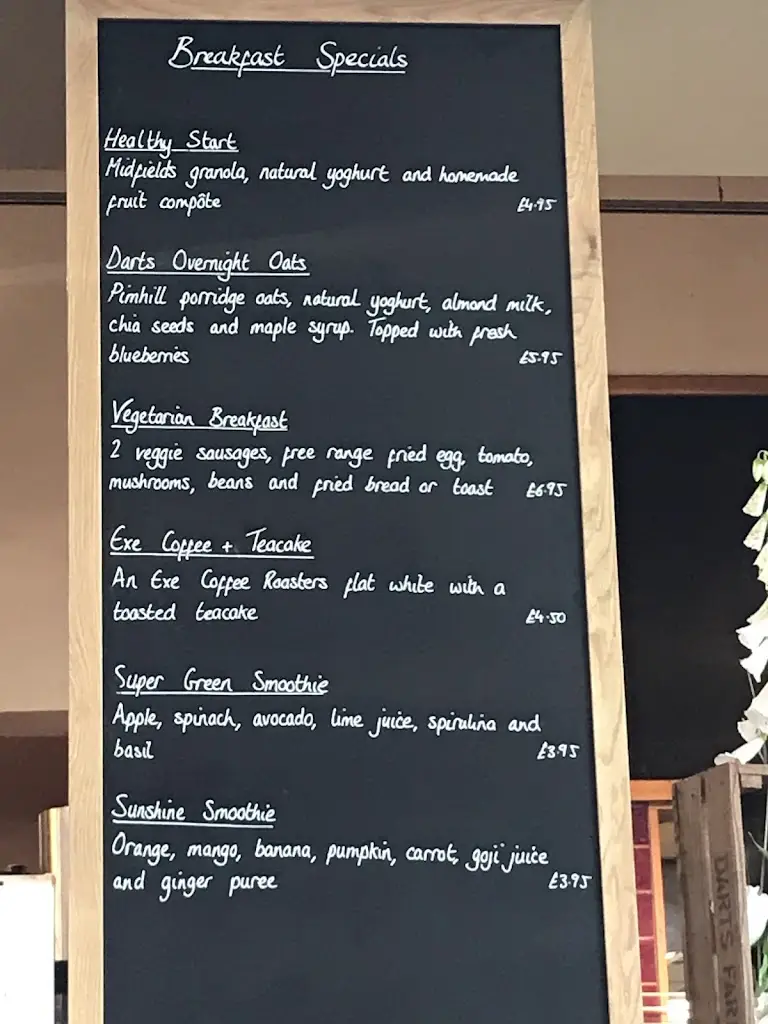 Breakfast Specials
Healthy Start
Midfields granola, natural yoghurt and homemade
fruit compôte £4.95
Darts Overnight Oats
Pimhill porridge oats, natural yoghurt, almond milk,
chia seeds and maple syrup. Topped with fresh
blueberries £5.95
Vegetarian Breakfast
2 veggie sausages, free range fried egg, tomato,
mushrooms, beans and fried bread or toast £6.95
Exe Coffee + Teacake
An Exe Coffee Roasters flat white with a
toasted teacake £4.50
Super Green Smoothie
Apple, spinach, avocado, lime juice, spirulina and
basil £3.95
Sunshine Smoothie
Orange, mango, banana, pumpkin, carrot, goji juice
and ginger puree £3.95
DARTS FAR